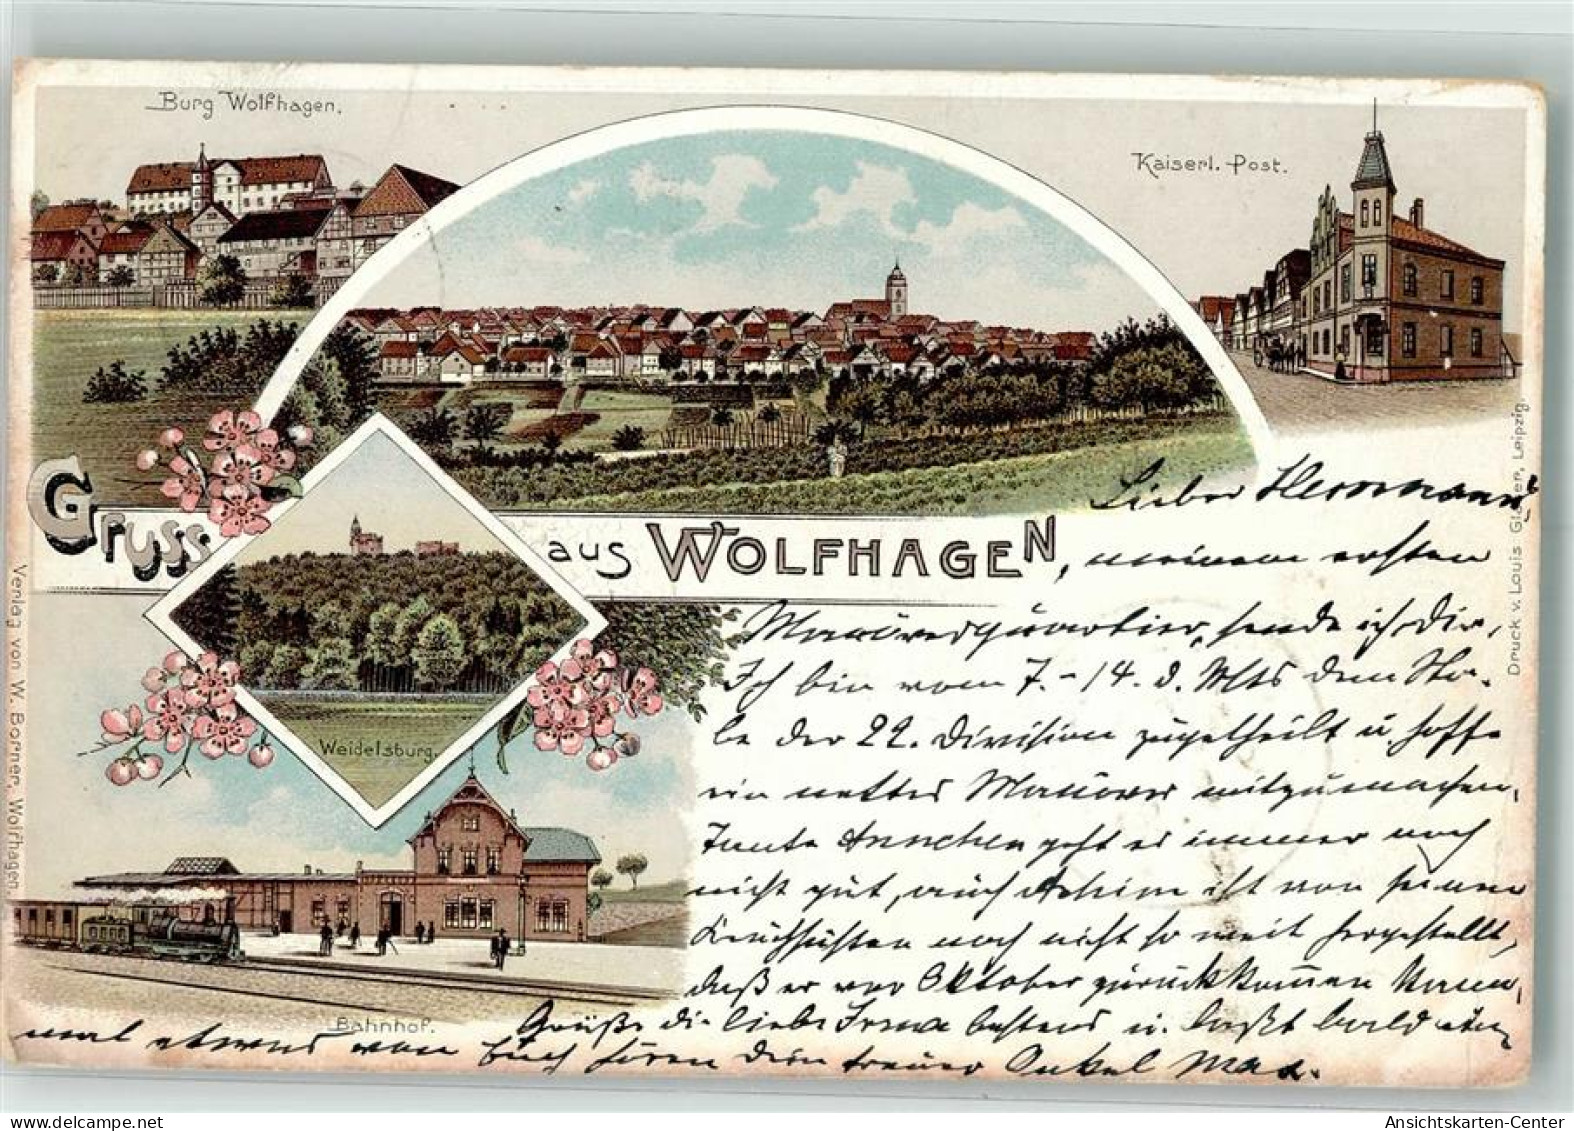 Burg Wolfhagen.
Kaiserl. Post.
Gruss aus WOLFHAGEN,
Weidelsburg.
Bahnhof.
Verlag von W. Borner, Wolfhagen
Druck v. Louis Glaser, Leipzig.
Lieber Herrmann!
meinem ersten
Manöverquartier, sende ich Dir,
Ich bin vom 7. - 14. d. Mts dem Sta-
be der 22. Division zugetheilt u hoffe
ein nettes Manöver mitzumachen.
Tante Annchen geht es immer noch
nicht gut, auch Achim ist von seinem
noch nicht so weit hergestellt,
daß er vor Oktober zurückkommen kann,
Grüße die liebe bestens u. laßt bald ein-
mal etwas von Euch hören Dein treuer Onkel Max.
www.delcampe.net
tpk111de
Ansichtskarten-Center